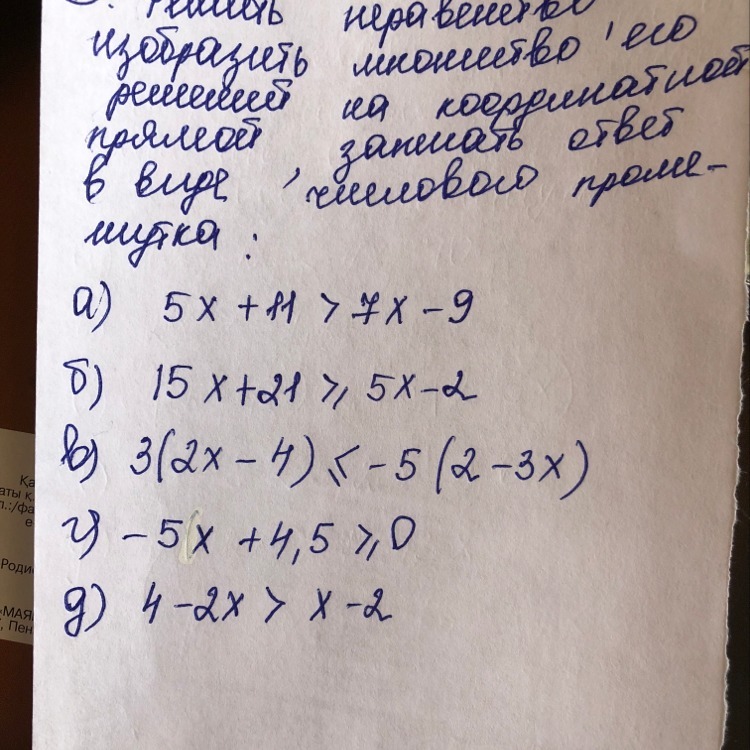 Решить неравенство
изобразить множество его
решений на координатной
прямой записать ответ
в виде числового проме-
жутка:
а) 5x + 11 > 7x - 9
б) 15x + 21 ⩾ 5x - 2
в) 3(2x - 4) ⩽ -5(2 - 3x)
г) -5x + 4,5 ⩾ 0
д) 4 - 2x > x - 2